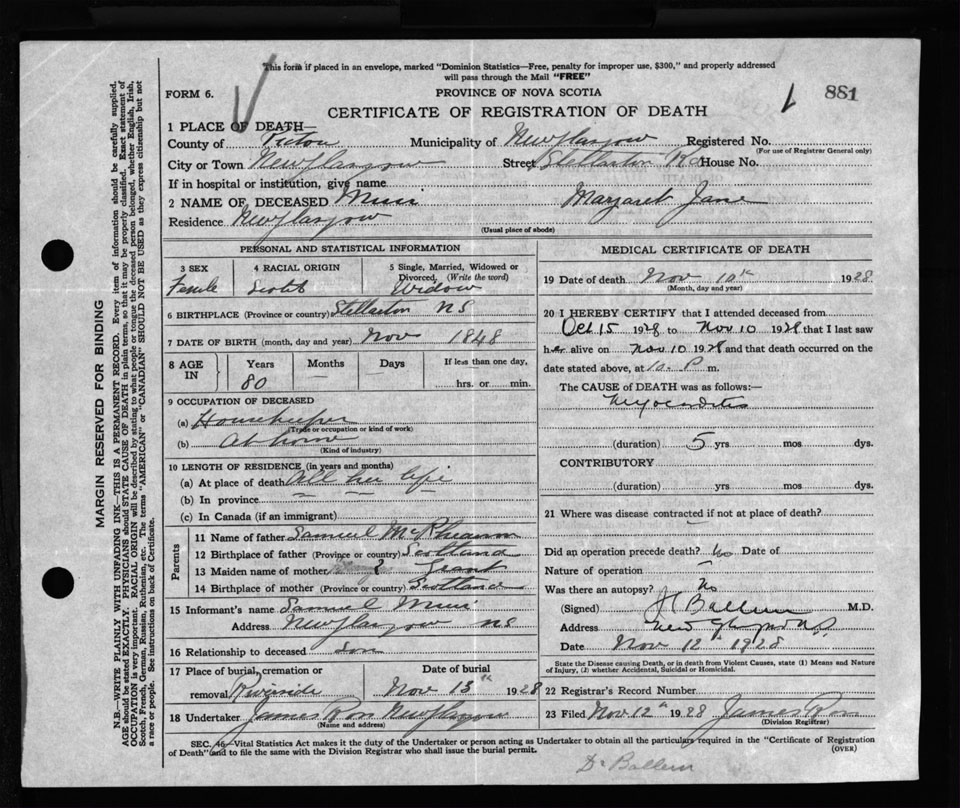 This form if placed in an envelope, marked "Dominion Statistics—Free, penalty for improper use, $300," and properly addressed
will pass through the Mail "FREE"
FORM 6.
PROVINCE OF NOVA SCOTIA
881
CERTIFICATE OF REGISTRATION OF DEATH
1 PLACE OF DEATH—
County of Pictou Municipality of New Glasgow Registered No.
(For use of Registrar General only)
City or Town New Glasgow Street Stellarton Rd House No.
If in hospital or institution, give name
2 NAME OF DECEASED Muir Margaret Jane
Residence New Glasgow
(Usual place of abode)
PERSONAL AND STATISTICAL INFORMATION
3 SEX 4 RACIAL ORIGIN 5 Single, Married, Widowed or
Divorced, (Write the word)
Female Scotch Widow
6 BIRTHPLACE (Province or country) Stellarton NS
7 DATE OF BIRTH (month, day and year) Nov 1848
8 AGE IN Years Months Days If less than one day,
80 — — hrs. or min.
9 OCCUPATION OF DECEASED
(a) Housekeeper
(Trade or occupation or kind of work)
(b) At home
(Kind of industry)
10 LENGTH OF RESIDENCE (in years and months)
(a) At place of death All her life
(b) In province
(c) In Canada (if an immigrant)
Parents
11 Name of father Samuel
12 Birthplace of father (Province or country) Scotland
13 Maiden name of mother ? Grant
14 Birthplace of mother (Province or country) Scotland
15 Informant's name Samuel Muir
Address New Glasgow NS
16 Relationship to deceased Son
17 Place of burial, cremation or Date of burial
removal Riverside Nov 13th 1928
18 Undertaker James Ross New Glasgow
(Name and address)
MEDICAL CERTIFICATE OF DEATH
19 Date of death Nov 10th 1928
(Month, day and year)
20 I HEREBY CERTIFY that I attended deceased from
Oct 15 1928 to Nov 10 1928 that I last saw
her alive on Nov 10 1928 and that death occurred on the
date stated above, at 10. P m.
The CAUSE of DEATH was as follows:—
Myocarditis
(duration) 5 yrs mos dys.
CONTRIBUTORY
(duration) yrs mos dys.
21 Where was disease contracted if not at place of death?
Did an operation precede death? No Date of
Nature of operation
Was there an autopsy? No
(Signed) Ballem M.D.
Address New Glasgow N.S.
Date Nov 12th 1928
State the Disease causing Death, or in death from Violent Causes, state (1) Means and Nature
of Injury, (2) whether Accidental, Suicidal or Homicidal.
22 Registrar's Record Number
23 Filed Nov 12th 1928 James Ross
(Division Registrar)
SEC. 46—Vital Statistics Act makes it the duty of the Undertaker or person acting as Undertaker to obtain all the particulars required in the "Certificate of Registration
of Death" and to file the same with the Division Registrar who shall issue the burial permit.
(OVER)
Dr Ballem
MARGIN RESERVED FOR BINDING
N.B.—WRITE PLAINLY WITH UNFADING INK—THIS IS A PERMANENT RECORD. Every item of information should be carefully supplied.
AGE should be stated EXACTLY. PHYSICIANS should STATE CAUSE OF DEATH in plain terms, so that it may be properly classified. Exact statement of
OCCUPATION is very important. RACIAL ORIGIN will be described by stating to what people or tongue the deceased person belonged, whether English, Irish,
Scotch, French, German, Russian, Ruthenian, etc. The terms "AMERICAN" or "CANADIAN" SHOULD NOT BE USED as they express citizenship but not
a race or people. See instructions on back of Certificate.